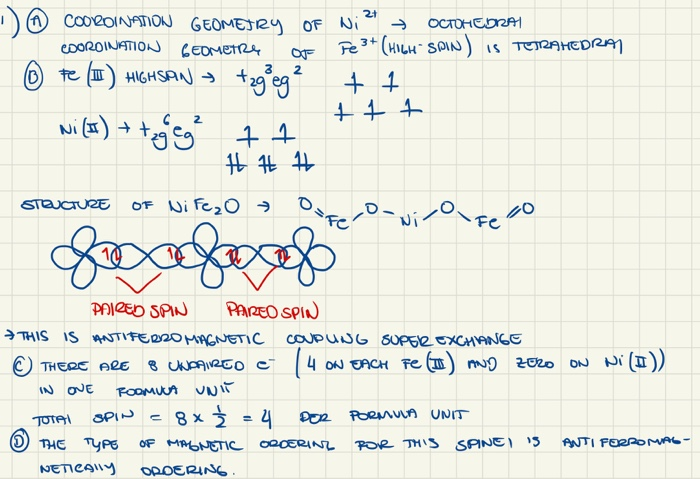 1) Ⓐ COORDINATION GEOMETRY OF Ni²⁺ → OCTOHEDRAL
COORDINATION GEOMETRY OF Fe³⁺ (HIGH-SPIN) IS TETRAHEDRAL
Ⓑ Fe (III) HIGHSPIN → t₂g³eg²
Ni(II) → t₂g⁶eg²
STRUCTURE OF NiFe₂O → O=Fe-O-Ni-O-Fe=O
PAIRED SPIN PAIRED SPIN
→ THIS IS ANTIFERROMAGNETIC COUPLING SUPER EXCHANGE
Ⓒ THERE ARE 8 UNPAIRED e⁻ (4 ON EACH Fe(III) AND ZERO ON Ni(II))
IN ONE FORMULA UNIT
TOTAL SPIN = 8 × 1/2 = 4 PER FORMULA UNIT
Ⓓ THE TYPE OF MAGNETIC ORDERING FOR THIS SPINEL IS ANTIFERROMAG-
NETICALLY ORDERING.